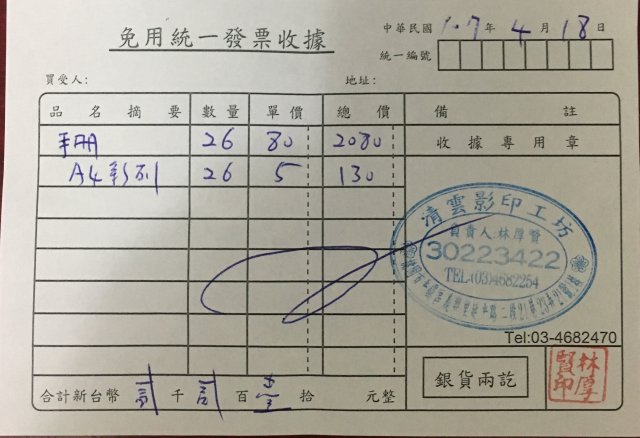 免用統一發票收據
中華民國 107年 4月 18日
統一編號
買受人: 地址:
品名摘要 數量 單價 總價 備註
手冊 26 80 2080 收據專用章
A4彩列 26 5 130
清雲影印工坊
負責人:林厚賢
30223422
TEL:(03)4682254
Tel:03-4682470
合計新台幣 貳千貳百 拾 元整
銀貨兩訖
林厚賢印